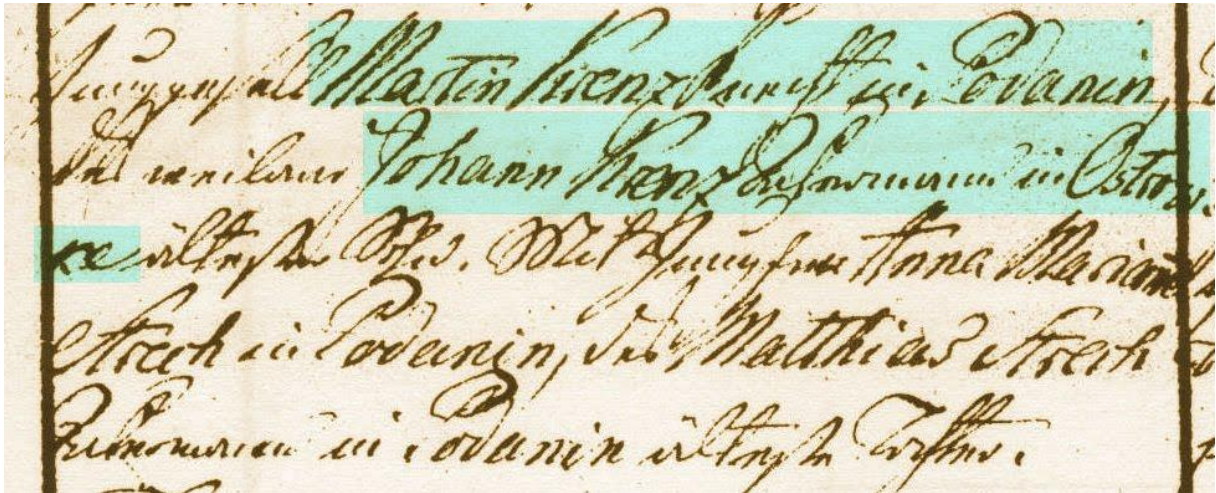 Junggesell Martin Krenz Knecht in Podanin,
des weiland Johann Krenz Ackersmann in Ostrow
ke ältester Sohn. Mit Jungfrau Anna Mariane
Strech in Podanin, des Matthias Strech
in Podanin älteste Tochter.